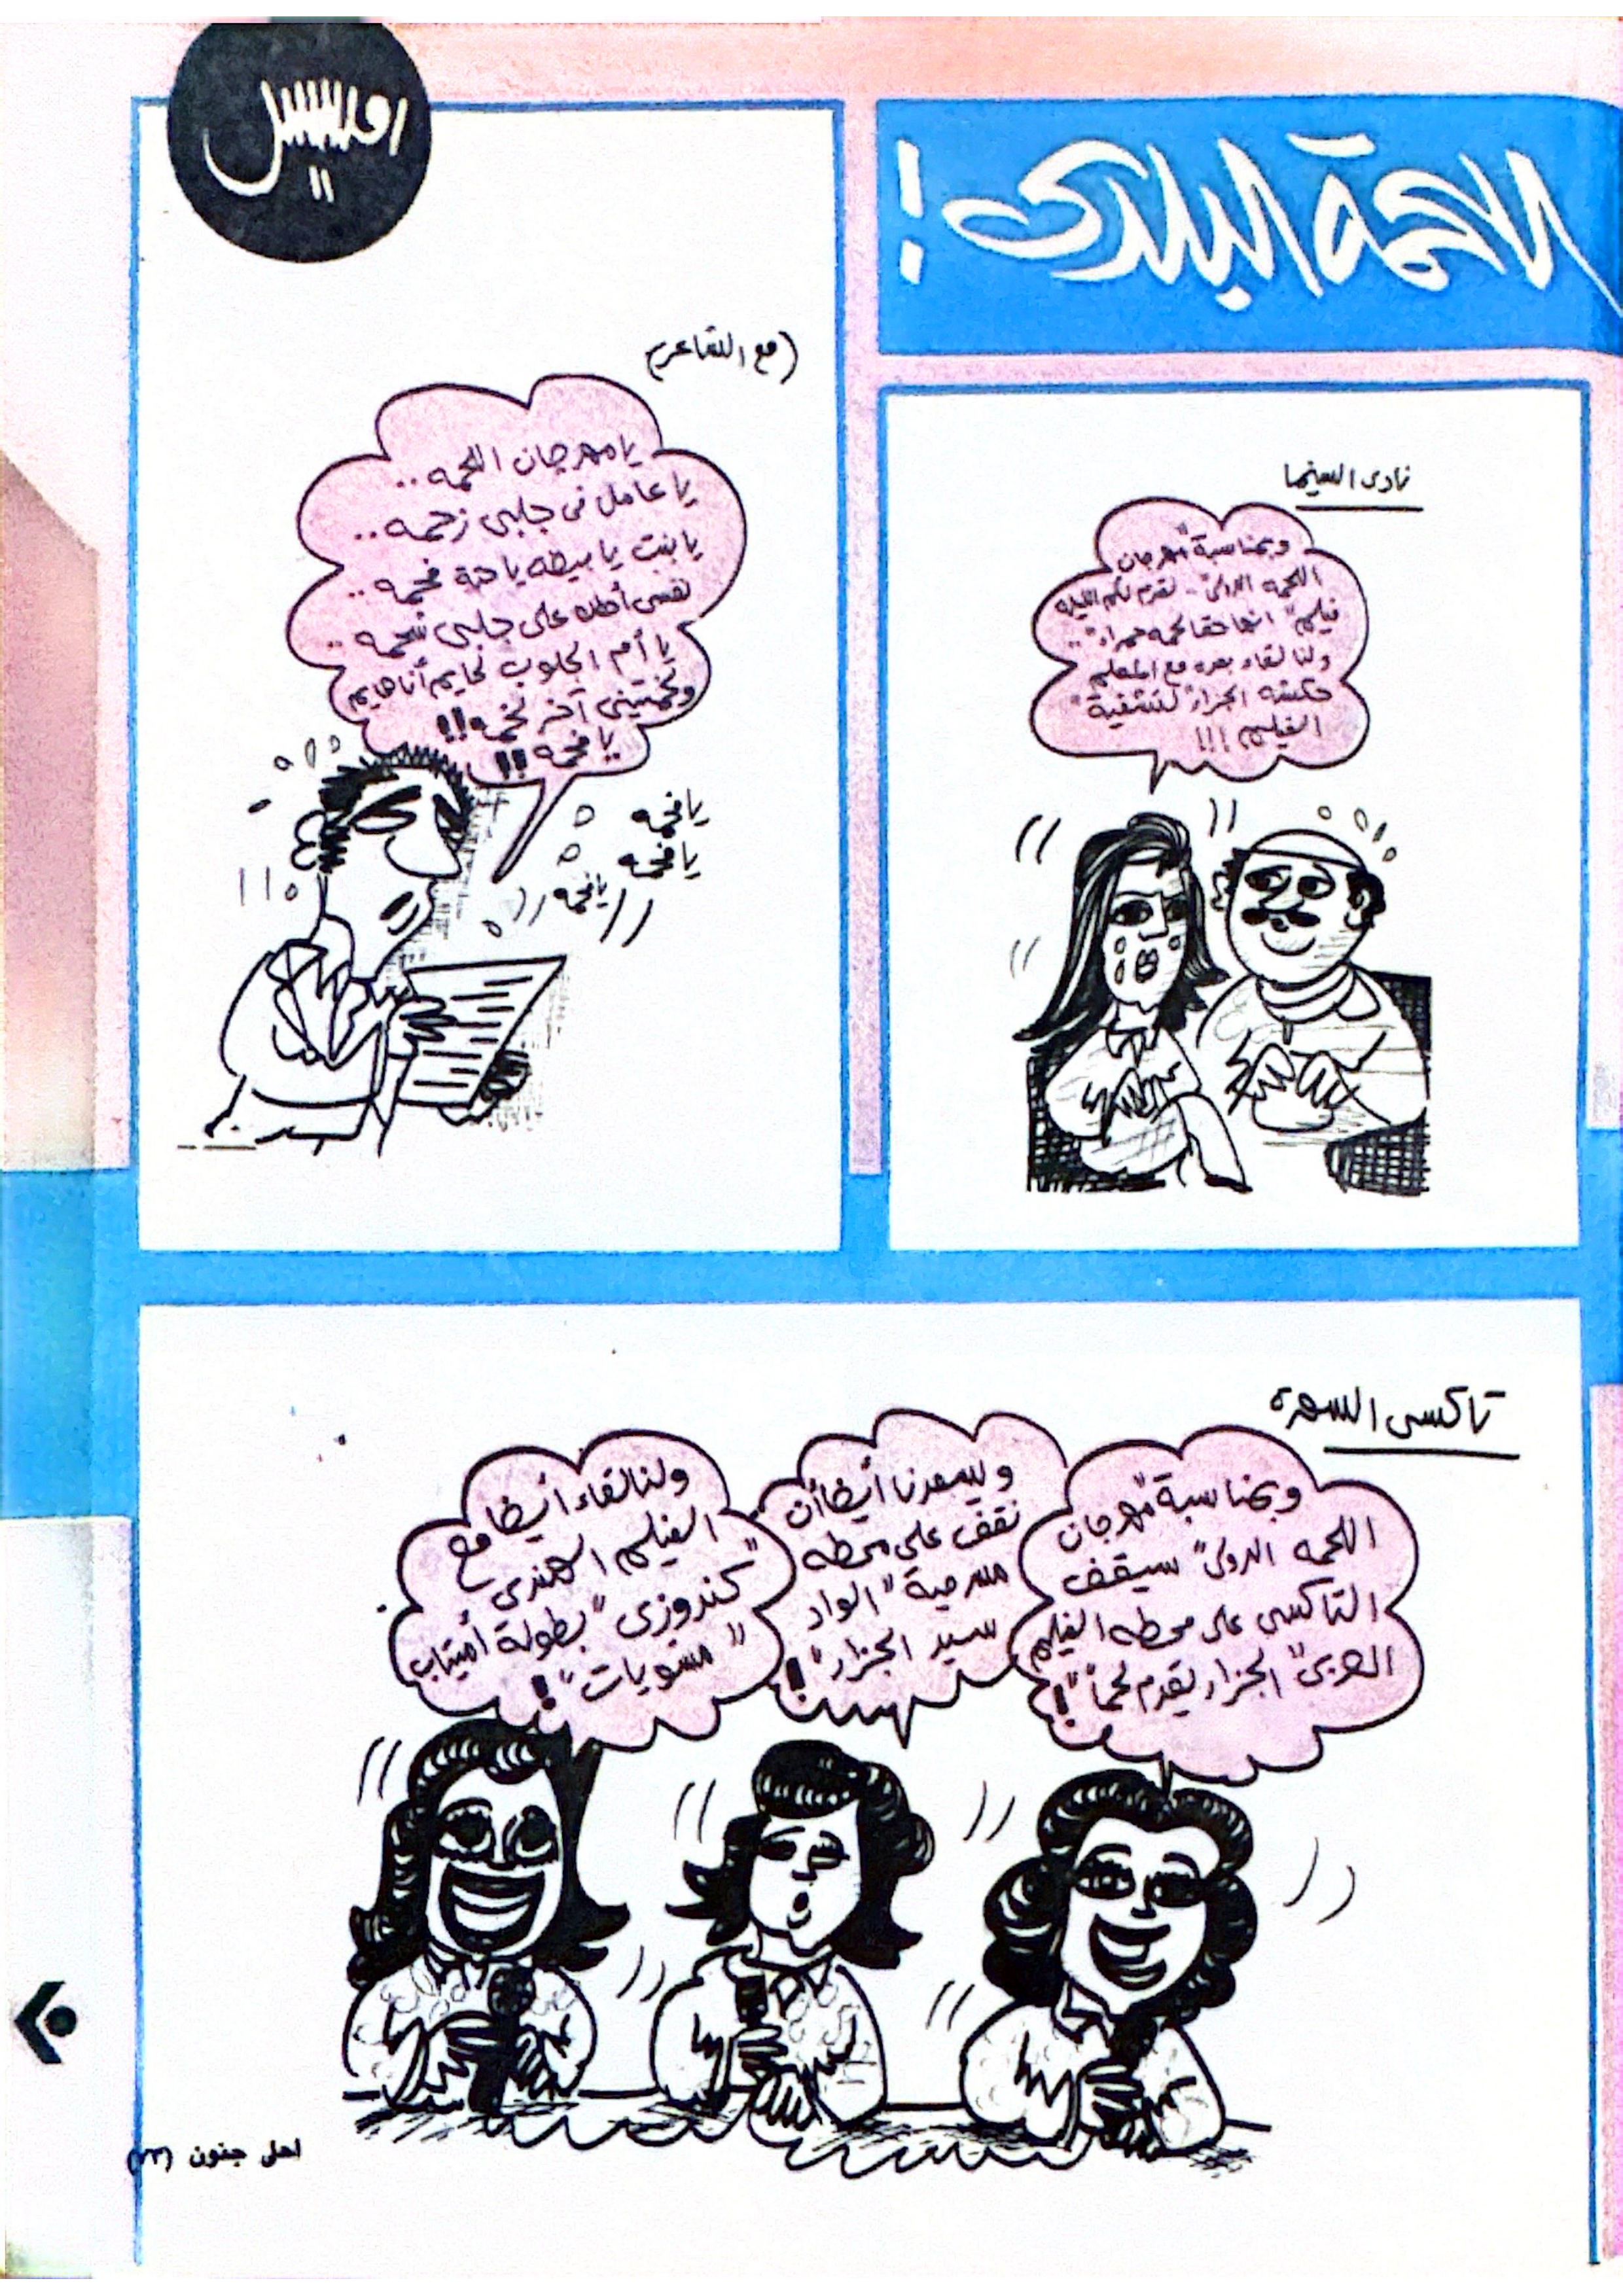 اللحمة البلدى !
نادى السينما
وبمناسبة "مهرجان
اللحمه الدولى" .. نقدم لكم الليله
فيلم "انها حقا لحمه حمراء" ..
ولنا لقاء بعده مع المعلم
حكشه الجزار "لتشفية"
الفيلم !!!
(مع الشاعر)
يا مهرجان اللحمه ..
يا عامل فى جلبى زحمه ..
يا بنت يا بيضه يا حتة فحمه ..
نفسى أحطك على جلبى شحمه ..
يا أم الجلوب لحايم أنا هايم
ولخمتينى آخر لخمه !!
يا فحمه !!
يا فحمه
يا فحمه
يا فحمه
تاكسى السهرة
وبمناسبة "مهرجان
اللحمه الدولى" سيقف
التاكسى على محطه الفيلم
العربى "الجزار يقدم لحماً" !
ويسعدنا أيضا أن
نقف على محطه
مسرحية "الواد
سيد الجزار" !
ولنا لقاء أيضا مع
الفيلم الهندى
"كندوزى" بطولة أميتاب
"مشويات" !
احلى جنون (٢٣)